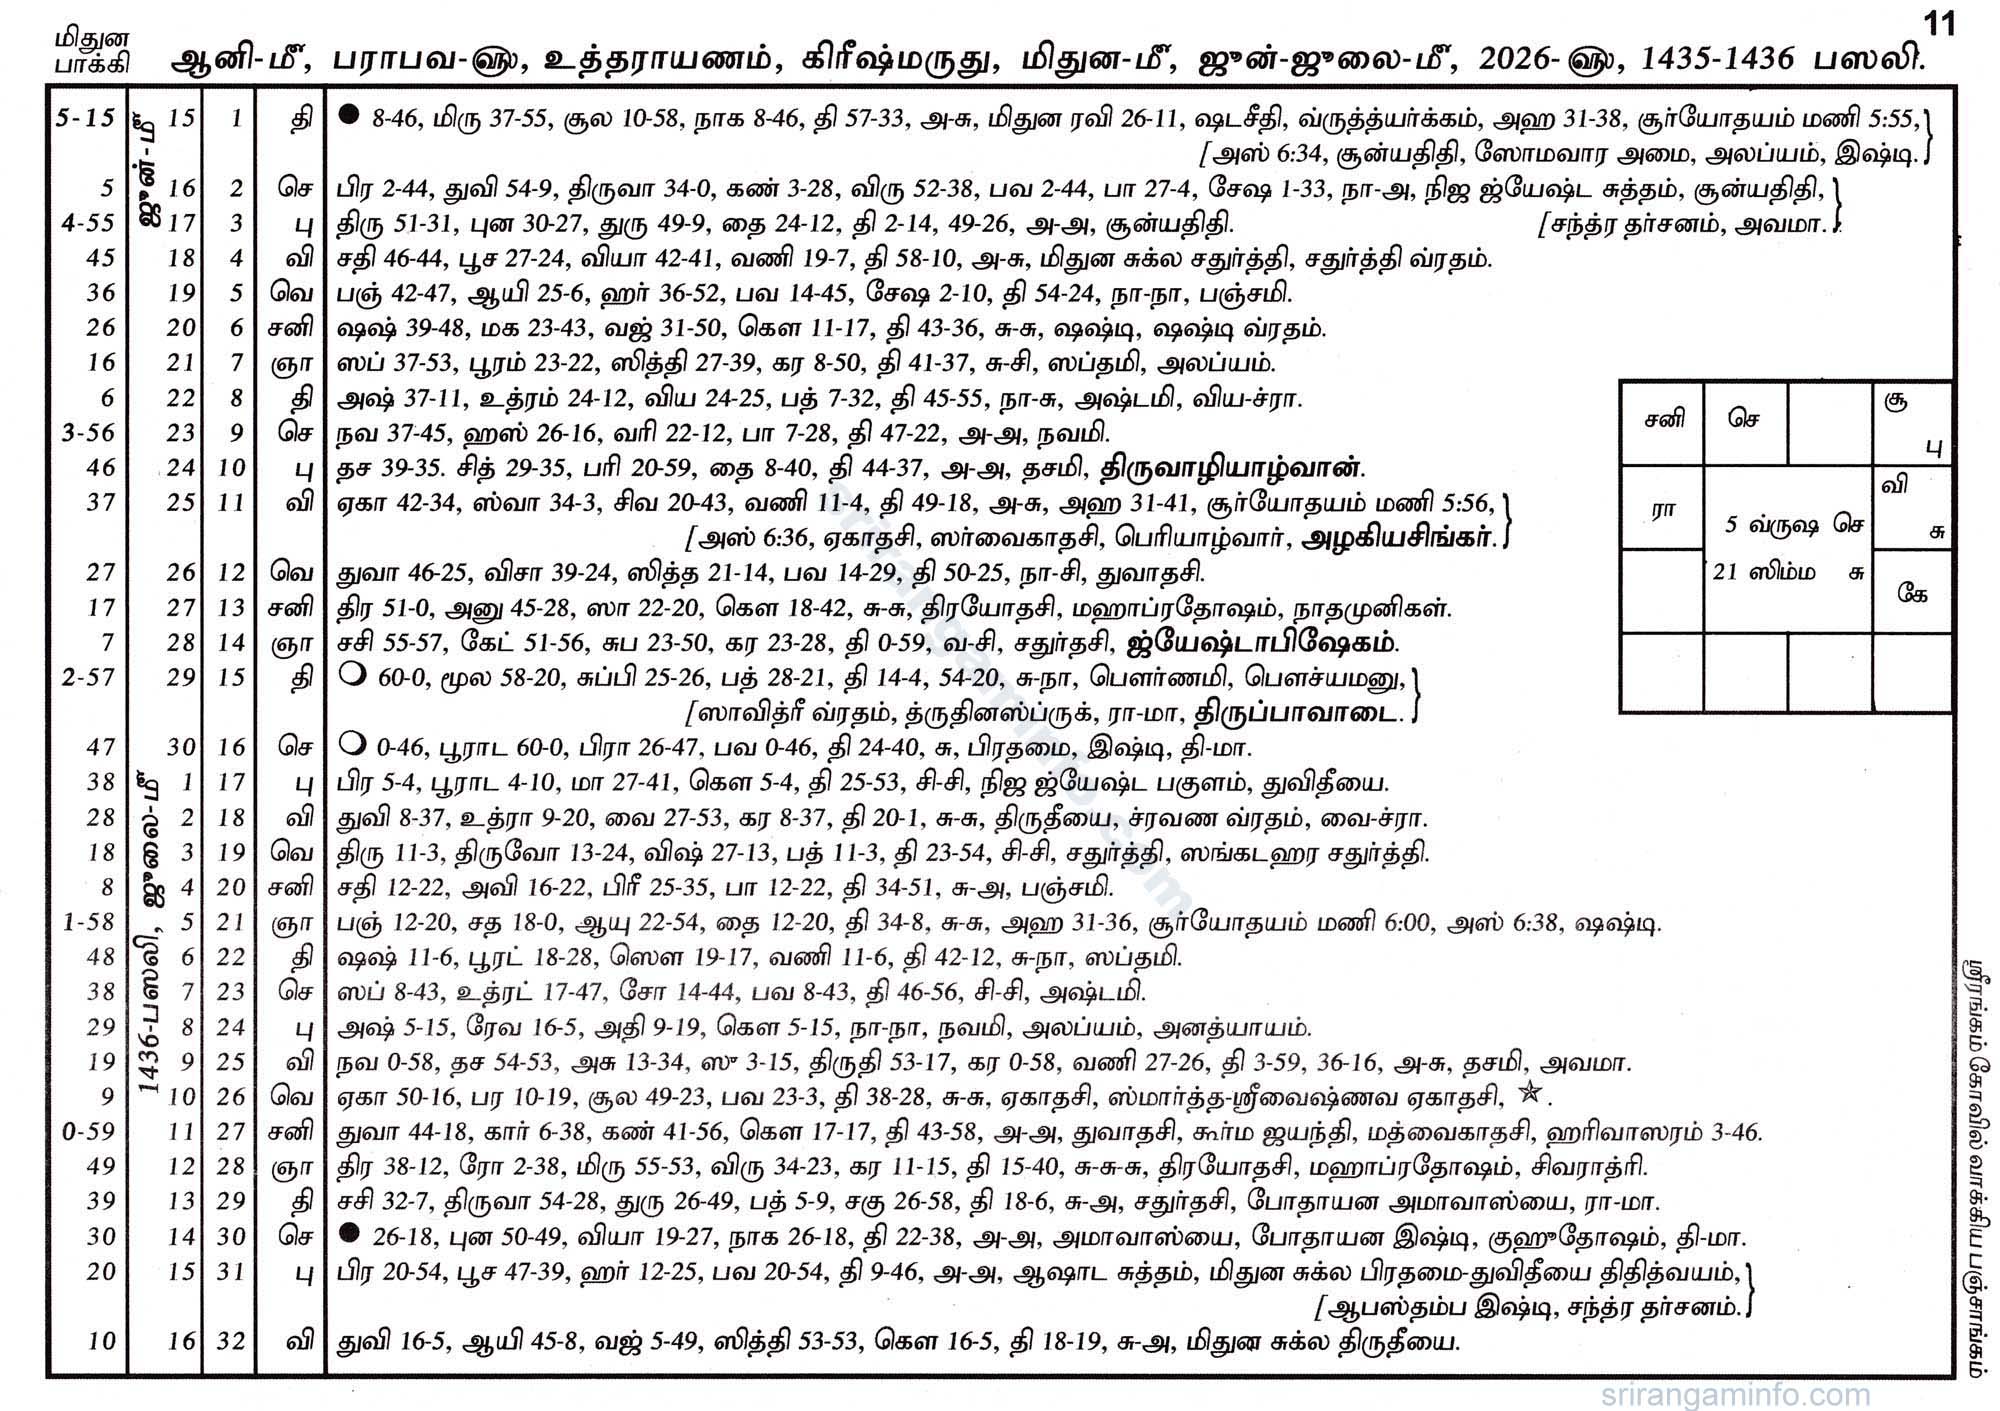 11
மிதுன
பாக்கி
ஆனி-மீ, பராபவ-௵, உத்தராயணம், கிரீஷ்மருது, மிதுன-மீ, ஜுன்-ஜுலை-மீ, 2026-௵, 1435-1436 பஸலி.
ஜுன்-மீ
5-15 15 1 தி ● 8-46, மிரு 37-55, சூல 10-58, நாக 8-46, தி 57-33, அ-சு, மிதுன ரவி 26-11, ஷடசீதி, வ்ருத்த்யர்க்கம், அஹ 31-38, சூர்யோதயம் மணி 5:55,
[அஸ் 6:34, சூன்யதிதி, ஸோமவார அமை, அலப்யம், இஷ்டி.
5 16 2 செ பிர 2-44, துவி 54-9, திருவா 34-0, கண் 3-28, விரு 52-38, பவ 2-44, பா 27-4, சேஷ 1-33, நா-அ, நிஜ ஜ்யேஷ்ட சுத்தம், சூன்யதிதி,
4-55 17 3 பு திரு 51-31, புன 30-27, துரு 49-9, தை 24-12, தி 2-14, 49-26, அ-அ, சூன்யதிதி. [சந்த்ர தர்சனம், அவமா.
45 18 4 வி சதி 46-44, பூச 27-24, வியா 42-41, வணி 19-7, தி 58-10, அ-சு, மிதுன சுக்ல சதுர்த்தி, சதுர்த்தி வ்ரதம்.
36 19 5 வெ பஞ் 42-47, ஆயி 25-6, ஹர் 36-52, பவ 14-45, சேஷ 2-10, தி 54-24, நா-நா, பஞ்சமி.
26 20 6 சனி ஷஷ் 39-48, மக 23-43, வஜ் 31-50, கௌ 11-17, தி 43-36, சு-சு, ஷஷ்டி, ஷஷ்டி வ்ரதம்.
16 21 7 ஞா ஸப் 37-53, பூரம் 23-22, ஸித்தி 27-39, கர 8-50, தி 41-37, சு-சி, ஸப்தமி, அலப்யம்.
6 22 8 தி அஷ் 37-11, உத்ரம் 24-12, விய 24-25, பத் 7-32, தி 45-55, நா-சு, அஷ்டமி, விய-ச்ரா.
3-56 23 9 செ நவ 37-45, ஹஸ் 26-16, வரி 22-12, பா 7-28, தி 47-22, அ-அ, நவமி.
46 24 10 பு தச 39-35. சித் 29-35, பரி 20-59, தை 8-40, தி 44-37, அ-அ, தசமி, திருவாழியாழ்வான்.
37 25 11 வி ஏகா 42-34, ஸ்வா 34-3, சிவ 20-43, வணி 11-4, தி 49-18, அ-சு, அஹ 31-41, சூர்யோதயம் மணி 5:56,
[அஸ் 6:36, ஏகாதசி, ஸர்வைகாதசி, பெரியாழ்வார், அழகியசிங்கர்.
27 26 12 வெ துவா 46-25, விசா 39-24, ஸித்த 21-14, பவ 14-29, தி 50-25, நா-சி, துவாதசி.
17 27 13 சனி திர 51-0, அனு 45-28, ஸா 22-20, கௌ 18-42, சு-சு, திரயோதசி, மஹாப்ரதோஷம், நாதமுனிகள்.
7 28 14 ஞா சசி 55-57, கேட் 51-56, சுப 23-50, கர 23-28, தி 0-59, வ-சி, சதுர்தசி, ஜ்யேஷ்டாபிஷேகம்.
2-57 29 15 தி ○ 60-0, மூல 58-20, சுப்பி 25-26, பத் 28-21, தி 14-4, 54-20, சு-நா, பௌர்ணமி, பௌச்யமனு,
[ஸாவித்ரீ வ்ரதம், த்ருதினஸ்ப்ருக், ரா-மா, திருப்பாவாடை.
47 30 16 செ ○ 0-46, பூராட 60-0, பிரா 26-47, பவ 0-46, தி 24-40, சு, பிரதமை, இஷ்டி, தி-மா.
1436-பஸலி, ஜுலை-மீ
38 1 17 பு பிர 5-4, பூராட 4-10, மா 27-41, கௌ 5-4, தி 25-53, சி-சி, நிஜ ஜ்யேஷ்ட பகுளம், துவிதீயை.
28 2 18 வி துவி 8-37, உத்ரா 9-20, வை 27-53, கர 8-37, தி 20-1, சு-சு, திருதீயை, ச்ரவண வ்ரதம், வை-ச்ரா.
18 3 19 வெ திரு 11-3, திருவோ 13-24, விஷ் 27-13, பத் 11-3, தி 23-54, சி-சி, சதுர்த்தி, ஸங்கடஹர சதுர்த்தி.
8 4 20 சனி சதி 12-22, அவி 16-22, பிரீ 25-35, பா 12-22, தி 34-51, சு-அ, பஞ்சமி.
1-58 5 21 ஞா பஞ் 12-20, சத 18-0, ஆயு 22-54, தை 12-20, தி 34-8, சு-சு, அஹ 31-36, சூர்யோதயம் மணி 6:00, அஸ் 6:38, ஷஷ்டி.
48 6 22 தி ஷஷ் 11-6, பூரட் 18-28, ஸௌ 19-17, வணி 11-6, தி 42-12, சு-நா, ஸப்தமி.
38 7 23 செ ஸப் 8-43, உத்ரட் 17-47, சோ 14-44, பவ 8-43, தி 46-56, சி-சி, அஷ்டமி.
29 8 24 பு அஷ் 5-15, ரேவ 16-5, அதி 9-19, கௌ 5-15, நா-நா, நவமி, அலப்யம், அனத்யாயம்.
19 9 25 வி நவ 0-58, தச 54-53, அசு 13-34, ஸு 3-15, திருதி 53-17, கர 0-58, வணி 27-26, தி 3-59, 36-16, அ-சு, தசமி, அவமா.
9 10 26 வெ ஏகா 50-16, பர 10-19, சூல 49-23, பவ 23-3, தி 38-28, சு-சு, ஏகாதசி, ஸ்மார்த்த-ஸ்ரீவைஷ்ணவ ஏகாதசி, ☆.
0-59 11 27 சனி துவா 44-18, கார் 6-38, கண் 41-56, கௌ 17-17, தி 43-58, அ-அ, துவாதசி, கூர்ம ஜயந்தி, மத்வைகாதசி, ஹரிவாஸரம் 3-46.
49 12 28 ஞா திர 38-12, ரோ 2-38, மிரு 55-53, விரு 34-23, கர 11-15, தி 15-40, சு-சு-சு, திரயோதசி, மஹாப்ரதோஷம், சிவராத்ரி.
39 13 29 தி சசி 32-7, திருவா 54-28, துரு 26-49, பத் 5-9, சகு 26-58, தி 18-6, சு-அ, சதுர்தசி, போதாயன அமாவாஸ்யை, ரா-மா.
30 14 30 செ ● 26-18, புன 50-49, வியா 19-27, நாக 26-18, தி 22-38, அ-அ, அமாவாஸ்யை, போதாயன இஷ்டி, குஹுதோஷம், தி-மா.
20 15 31 பு பிர 20-54, பூச 47-39, ஹர் 12-25, பவ 20-54, தி 9-46, அ-அ, ஆஷாட சுத்தம், மிதுன சுக்ல பிரதமை-துவிதீயை திதித்வயம்,
[ஆபஸ்தம்ப இஷ்டி, சந்த்ர தர்சனம்.
10 16 32 வி துவி 16-5, ஆயி 45-8, வஜ் 5-49, ஸித்தி 53-53, கௌ 16-5, தி 18-19, சு-அ, மிதுன சுக்ல திருதீயை.
சனி செ சூ
பு
ரா வி
சு
5 வ்ருஷ செ
21 ஸிம்ம சு
கே
ஸ்ரீரங்கம் கோவில் வாக்கிய பஞ்சாங்கம்
srirangaminfo.com
srirangaminfo.com